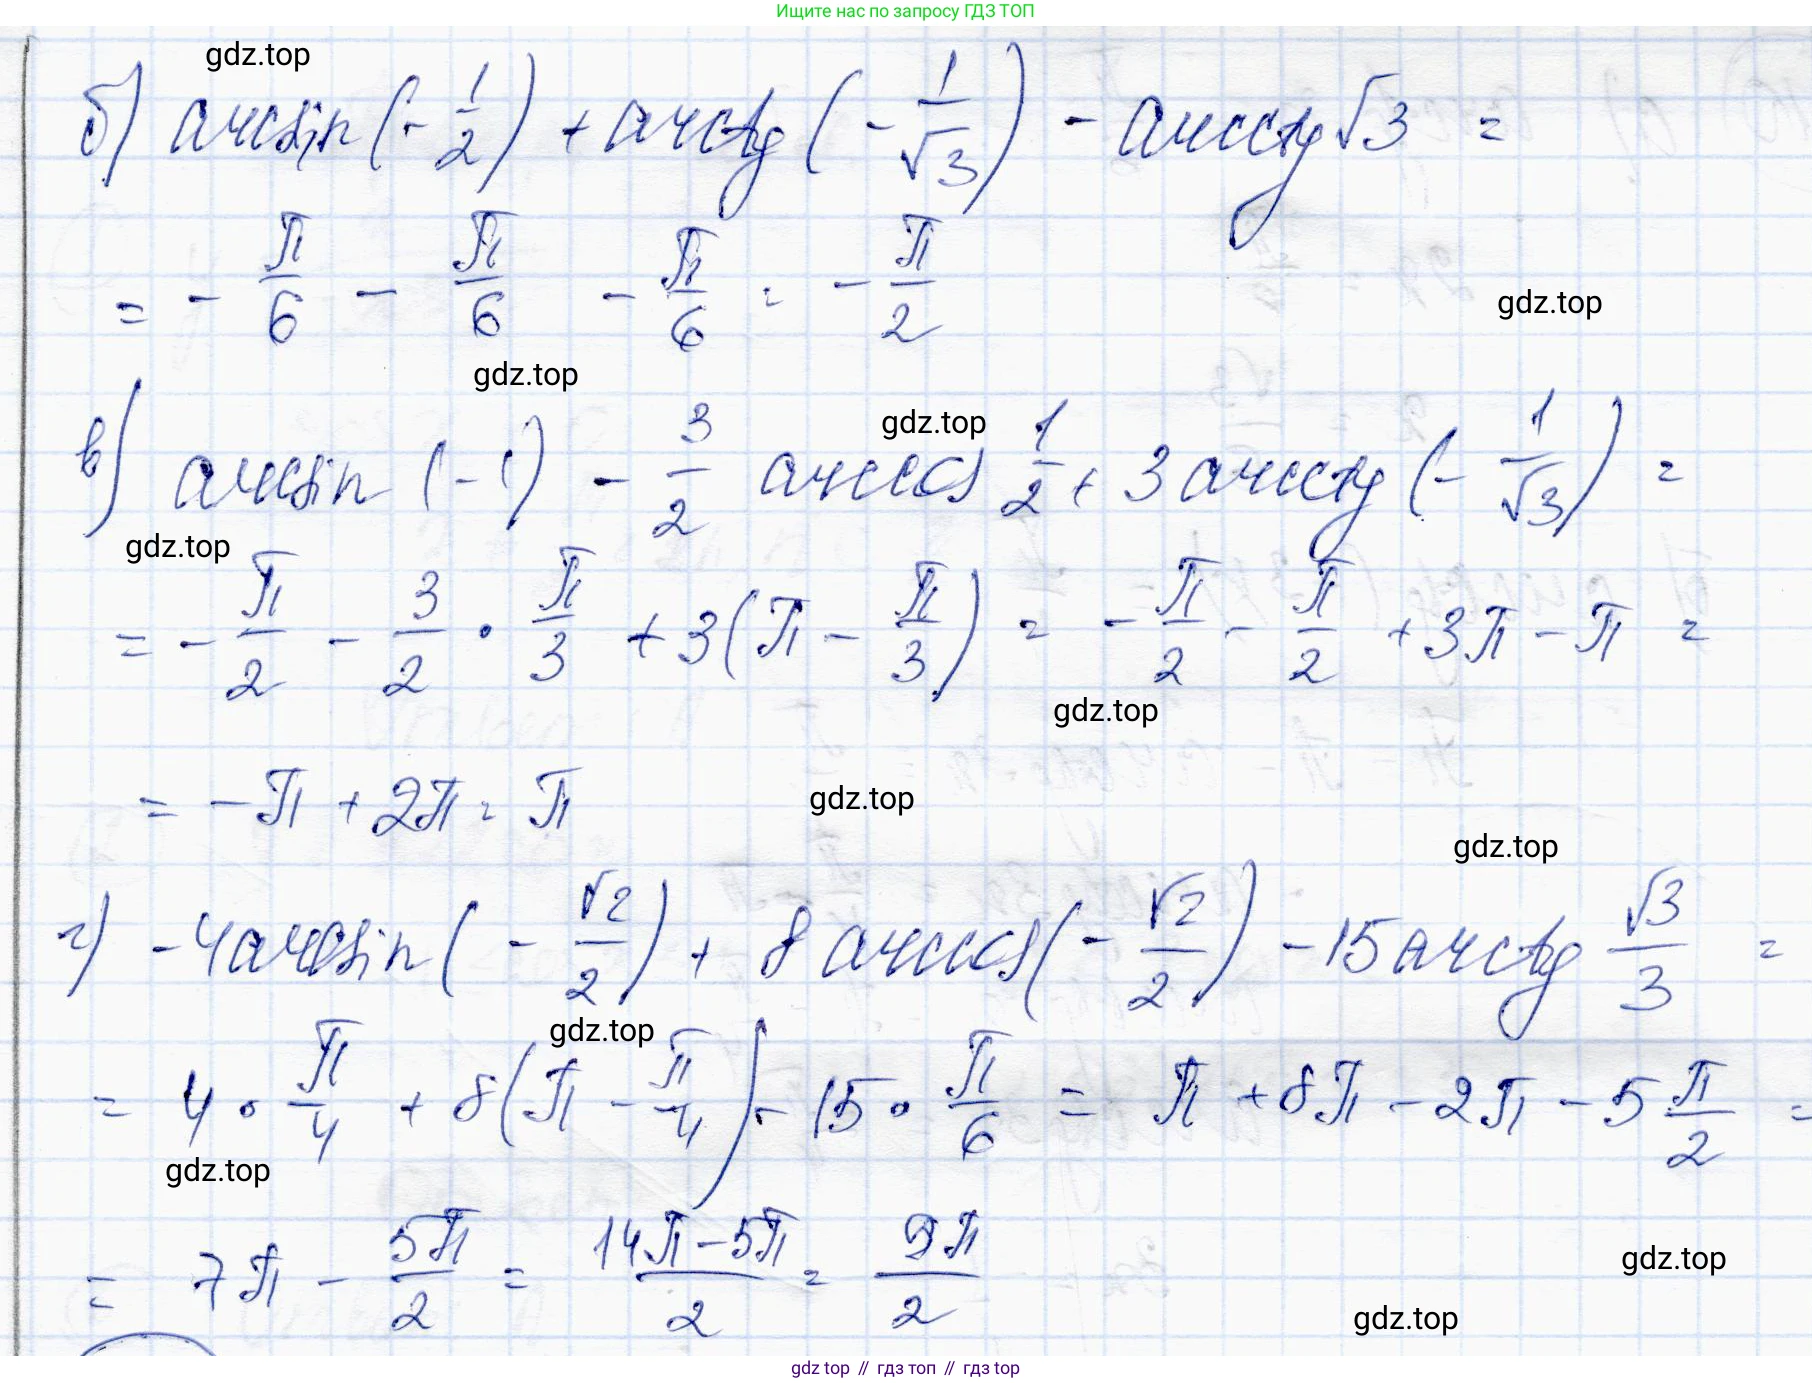 Ищите нас по запросу ГДЗ ТОП
gdz.top
б) arcsin(-1/2) + arctg(-1/√3) - arcctg√3 =
= - π/6 - π/6 - π/6 = - π/2
gdz.top
gdz.top
gdz.top
в) arcsin(-1) - 3/2 arccos 1/2 + 3arcctg(-1/√3) =
gdz.top
= - π/2 - 3/2 · π/3 + 3(π - π/3) = - π/2 - π/2 + 3π - π =
gdz.top
= -π + 2π = π
gdz.top
gdz.top
г) -4arcsin(-√2/2) + 8arccos(-√2/2) - 15arctg √3/3 =
gdz.top
= 4 · π/4 + 8(π - π/4) - 15 · π/6 = π + 8π - 2π - 5 π/2 =
gdz.top
= 7π - 5π/2 = 14π-5π/2 = 9π/2
gdz.top
gdz.top
gdz top // гдз топ // гдз top